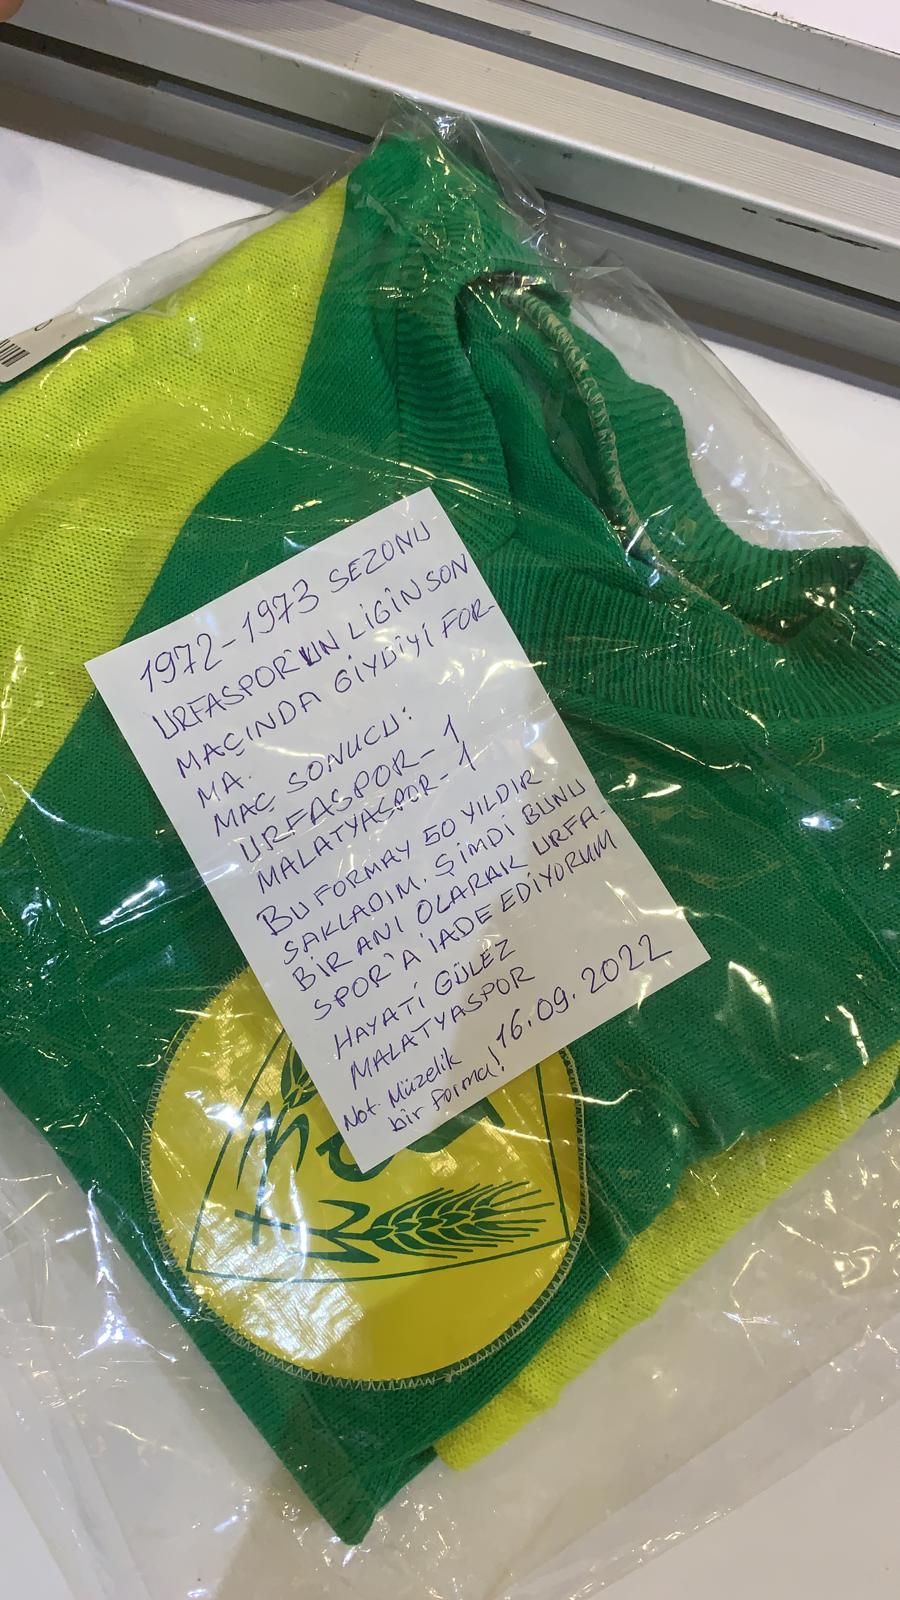 1972-1973 SEZONU
URFASPOR'UN LİGİN SON
MAÇINDA GİYDİYİ FOR-
MA.
MAÇ SONUCU:
URFASPOR-1
MALATYASPOR-1
BU FORMAY 50 YILDIR
SAKLADIM. ŞİMDİ BUNU
BİR ANI OLARAK URFA-
SPOR'A İADE EDİYORUM
HAYATİ GÜLEZ
MALATYASPOR
16.09.2022
Not. Müzelik
bir forma!